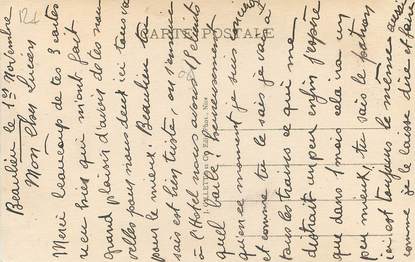 CARTE POSTALE
Beaulieu le 1er Novembre
Mon cher Lucien
Merci beaucoup de tes 3 cartes
reçu hier qui m'ont fait
grand plaisir d'avoir de tes nou
velles pour nous deux ici tous va
pour le mieux. Beaulieu tu
sais est bien triste, on s'ennuie
à l'Hotel nous avons 18 clients
quel baile! heureusement
qu'en ce moment je suis
et comme tu le sais je vais à
tous les trains ce qui me
distrait un peu enfin j'espère
que dans 1 mois cela ira un
peu mieux, tu sais le patron
ici est toujours le même
comme je te laisse dire il faut